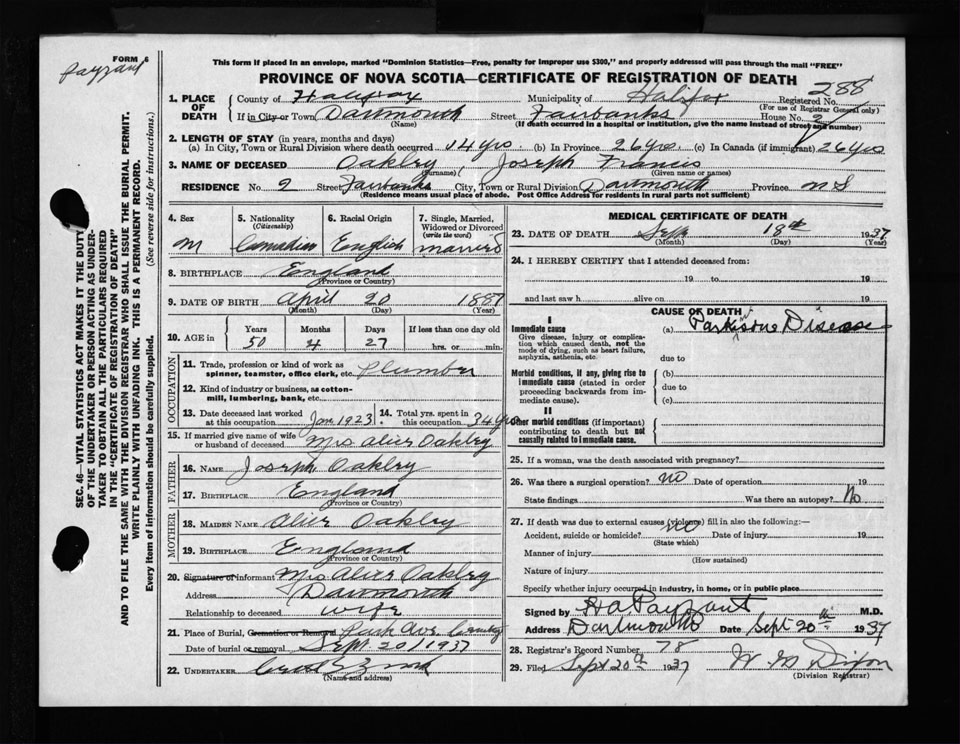 FORM 6
Payzant
This form if placed in an envelope, marked "Dominion Statistics—Free, penalty for improper use $300," and properly addressed will pass through the mail "FREE"
PROVINCE OF NOVA SCOTIA—CERTIFICATE OF REGISTRATION OF DEATH
288
1. PLACE OF DEATH
County of Halifax Municipality of Halifax Registered No.
(For use of Registrar General only)
If in City or Town Dartmouth Street Fairbanks House No. 2
(Name) (If death occurred in a hospital or institution, give the name instead of street and number)
2. LENGTH OF STAY (in years, months and days)
(a) In City, Town or Rural Division where death occurred 14 yrs (b) In Province 26 yrs. (c) In Canada (if immigrant) 26 yrs
3. NAME OF DECEASED Oakley Joseph Francis
(Surname) (Given name or names)
RESIDENCE No. 2 Street Fairbanks City, Town or Rural Division Dartmouth Province N S
(Residence means usual place of abode. Post Office Address for residents in rural parts not sufficient)
4. Sex
M
5. Nationality
(Citizenship)
Canadian
6. Racial Origin
English
7. Single, Married, Widowed or Divorced
(write the word)
married
8. BIRTHPLACE England
(Province or Country)
9. DATE OF BIRTH April 20 1887
(Month) (Day) (Year)
10. AGE in
Years Months Days If less than one day old
50 4 27 hrs. or min.
OCCUPATION
11. Trade, profession or kind of work as
spinner, teamster, office clerk, etc. Plumber
12. Kind of industry or business, as cotton-
mill, lumbering, bank, etc.
13. Date deceased last worked
at this occupation Jan. 1923.
14. Total yrs. spent in
this occupation 34 yrs
15. If married give name of wife
or husband of deceased Mrs Alice Oakley
FATHER
16. NAME Joseph Oakley
17. BIRTHPLACE England
(Province or Country)
MOTHER
18. MAIDEN NAME Alice Oakley
19. BIRTHPLACE England
(Province or Country)
20. Signature of informant Mrs Alice Oakley
Address Dartmouth
Relationship to deceased wife
21. Place of Burial, Cremation or Removal Park Ave. Cemetery
Date of burial or removal Sept 20/1937
22. UNDERTAKER
(Name and address)
MEDICAL CERTIFICATE OF DEATH
23. DATE OF DEATH Sept 18th 1937
(Month) (Day) (Year)
24. I HEREBY CERTIFY that I attended deceased from:
19 to 19
and last saw h alive on 19
CAUSE OF DEATH
I
Immediate cause
Give disease, injury or complication which caused death, not the mode of dying, such as heart failure, asphyxia, asthenia, etc.
(a) Parkinsons Disease
due to
Morbid conditions, if any, giving rise to immediate cause (stated in order proceeding backwards from immediate cause).
(b)
due to
(c)
II
Other morbid conditions (if important) contributing to death but not causally related to immediate cause.
25. If a woman, was the death associated with pregnancy?
26. Was there a surgical operation? no Date of operation 19
State findings Was there an autopsy? No
27. If death was due to external causes (violence) fill in also the following:—
Accident, suicide or homicide? no Date of injury 19
(State which)
Manner of injury
(How sustained)
Nature of injury
Specify whether injury occurred in industry, in home, or in public place
Signed by H A Payzant M.D.
Address Dartmouth Date Sept 20th 1937
28. Registrar's Record Number 78
29. Filed Sept 20th 1937 W. G. Dixon
(Division Registrar)
SEC. 46—VITAL STATISTICS ACT MAKES IT THE DUTY
OF THE UNDERTAKER OR PERSON ACTING AS UNDER-
TAKER TO OBTAIN ALL THE PARTICULARS REQUIRED
IN THE "CERTIFICATE OF REGISTRATION OF DEATH"
AND TO FILE THE SAME WITH THE DIVISION REGISTRAR WHO SHALL ISSUE THE BURIAL PERMIT.
WRITE PLAINLY WITH UNFADING INK. THIS IS A PERMANENT RECORD.
Every item of information should be carefully supplied. (See reverse side for instructions.)